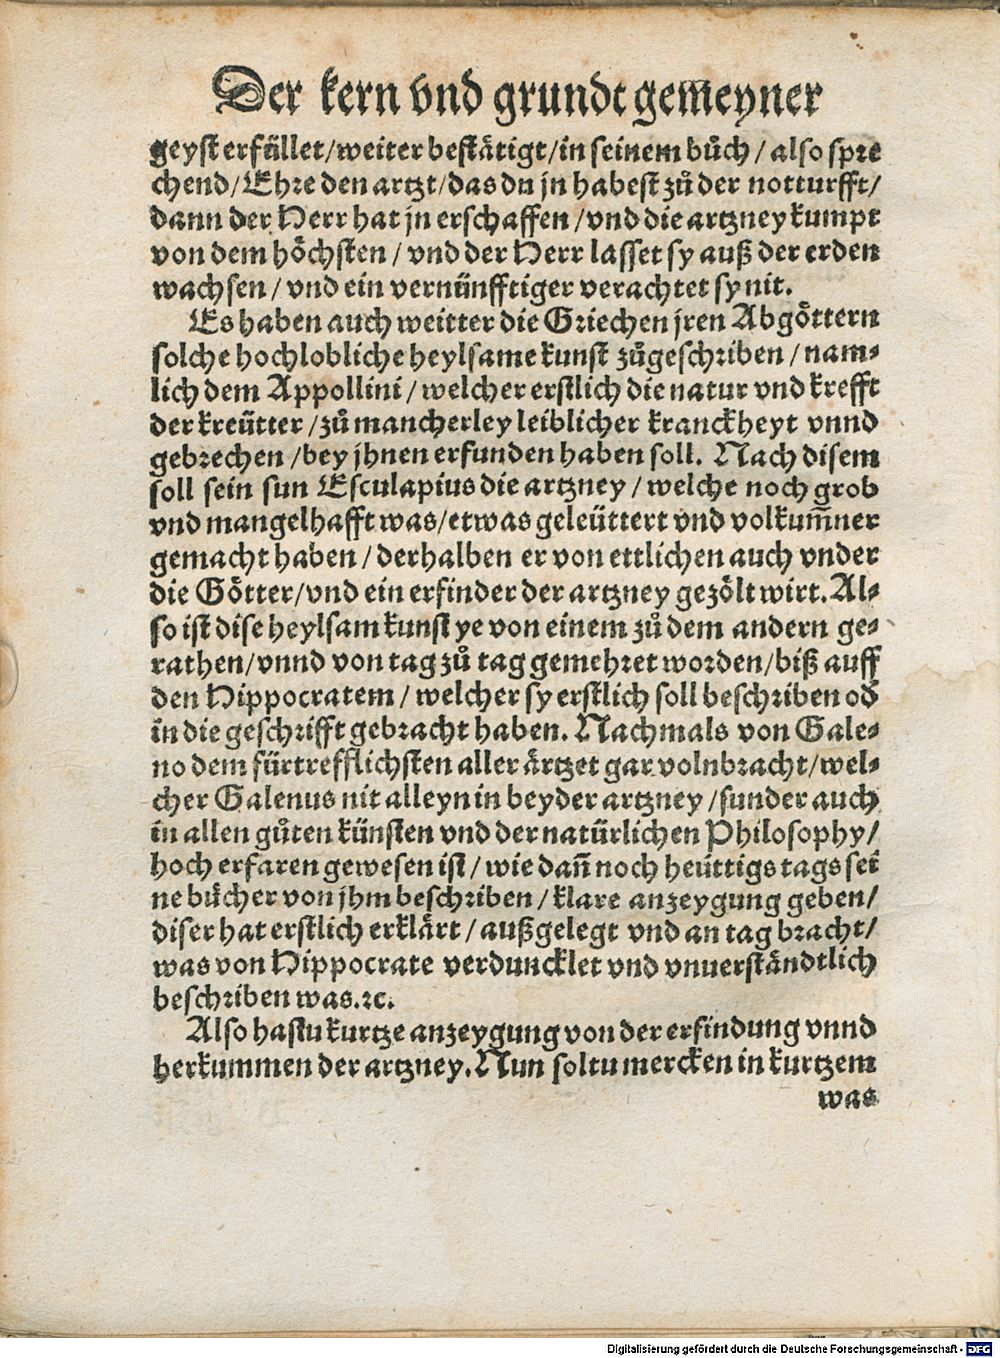 Der kern vnd grundt gemeyner
geyst erfüllet/weiter bestätigt/in seinem bůch / also spre
chend/Ehre den artzt/das du jn habest zů der notturfft/
dann der Herr hat jn erschaffen /vnd die artzney kumpt
von dem höchsten / vnd der Herr lasset sy auß der erden
wachsen / vnd ein vernünfftiger verachtet sy nit.
Es haben auch weitter die Griechen jren Abgöttern
solche hochlobliche heylsame kunst zůgeschriben / nam⸗
lich dem Appollini / welcher erstlich die natur vnd krefft
der kreütter /zů mancherley leiblicher kranckheyt vnnd
gebrechen /bey jhnen erfunden haben soll. Nach disem
soll sein sun Esculapius die artzney / welche noch grob
vnd mangelhafft was/etwas geleüttert vnd volkum̃ner
gemacht haben / derhalben er von ettlichen auch vnder
die Götter/vnd ein erfinder der artzney gezölt wirt. Al⸗
so ist dise heylsam kunst ye von einem zů dem andern ge⸗
rathen/vnnd von tag zů tag gemehret worden/biß auff
den Hippocratem / welcher sy erstlich soll beschriben od̕
in die geschrifft gebracht haben. Nachmals von Gale⸗
no dem fürtrefflichsten aller ärtzet gar volnbracht/wel⸗
cher Galenus nit alleyn in beyder artzney /sunder auch
in allen gůten künsten vnd der natürlichen Philosophy/
hoch erfaren gewesen ist / wie dañ noch heüttigs tags sei
ne bücher von jhm beschriben / klare anzeygung geben/
diser hat erstlich erklärt / außgelegt vnd an tag bracht/
was von Hippocrate verduncklet vnd vnuerständtlich
beschriben was.ꝛc.
Also hastu kurtze anzeygung von der erfindung vnnd
herkummen der artzney. Nun soltu mercken in kurtzem
was
Digitalisierung gefördert durch die Deutsche Forschungsgemeinschaft - DFG